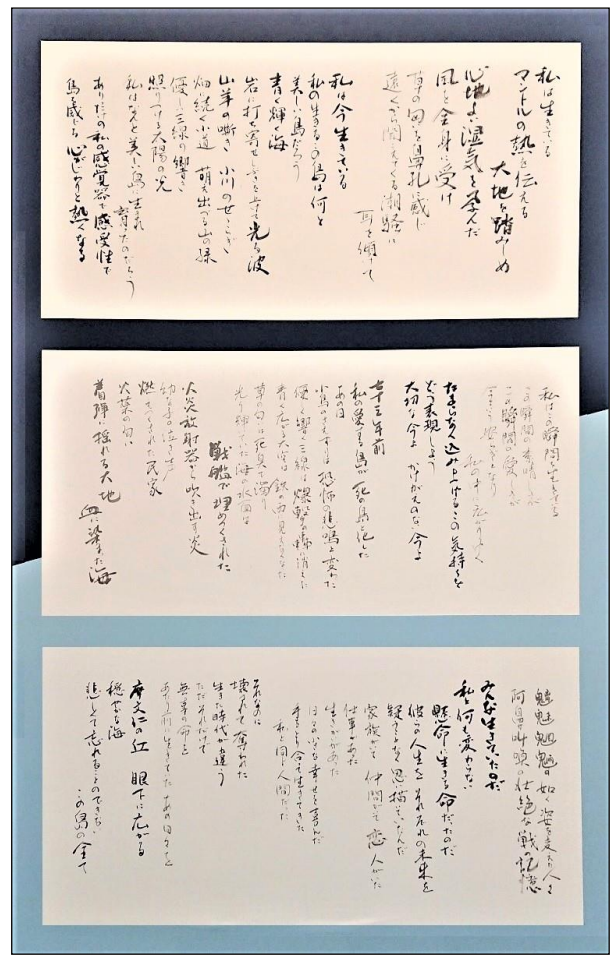 私は生きている
マントルの熱を伝える
大地を踏みしめ
心地よい湿気を孕んだ
風を全身に受け
草の匂いを鼻孔に感じ
遠くから聞こえてくる潮騒に
耳を傾けて
私は今生きている
私の生きるこの島は何と
美しい島だろう
青く輝く海
岩に打ち寄せしぶきを上げて光る波
山羊の嘶き 小川のせせらぎ
畑に続く小道 萌え出づる山の緑
優しい三線の響き
照りつける太陽の光
私はなんと美しい島に生まれ
育ったのだろう
ありったけの私の感覚器で感受性で
島を感じる 心がじわりと熱くなる
私はこの瞬間を生きている
この瞬間の素晴しさが
この瞬間の愛おしさが
今という安らぎとなり
私の中に広がりゆく
たまらなく込み上げるこの気持ちを
どう表現しよう
大切な今よ かけがえのない今よ
七十三年前
私の愛する島が死の島と化した
あの日
小鳥のさえずりは恐怖の悲鳴と変わった
優しく響く三線は爆撃の轟に消えた
青く広がる大空は鉄の雨に見えなくなった
草の匂いは死臭で濁り
光り輝いていた海の水面は
戦艦で埋めつくされた
火炎放射器から吹き出す炎
幼子の泣き声
燃えつくされた民家
火薬の匂い
着弾に揺れる大地 血に染まった海
魑魅魍魎の如く姿を変えた人々
阿鼻叫喚の壮絶な戦の記憶
みんな生きていたのだ
私と何も変わらない
懸命に生きる命だったのだ
彼らの人生をそれぞれの未来を
疑うことなく思い描いていたんだ
家族がいて 仲間がいて 恋人がいた
仕事があった
生きがいがあった
日々の小さな幸せを喜んだ
手をとり合って生きてきた
私と同じ人間だった
それなのに
壊されて奪われた
生きた時代が違う
ただそれだけで
無辜の命を
あたり前に生きていたあの日々を
摩文仁の丘 眼下に広がる
穏やかな海
悲しくて忘れることのできない
この島の全て